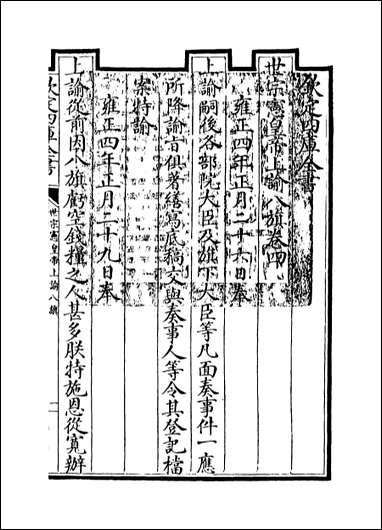 欽定四庫全書
世宗憲皇帝上諭八旗卷四
雍正四年正月二十六日奉
上諭嗣後各部院大臣及旗下大臣等凡面奏事件一應
所降諭旨俱著繕寫底稿交與奏事人等令其登記檔
案特諭
雍正四年正月二十九日奉
上諭從前因八旗虧空錢糧之人甚多朕特施恩從寬辦
欽定四庫全書
世宗憲皇帝上諭八旗
一